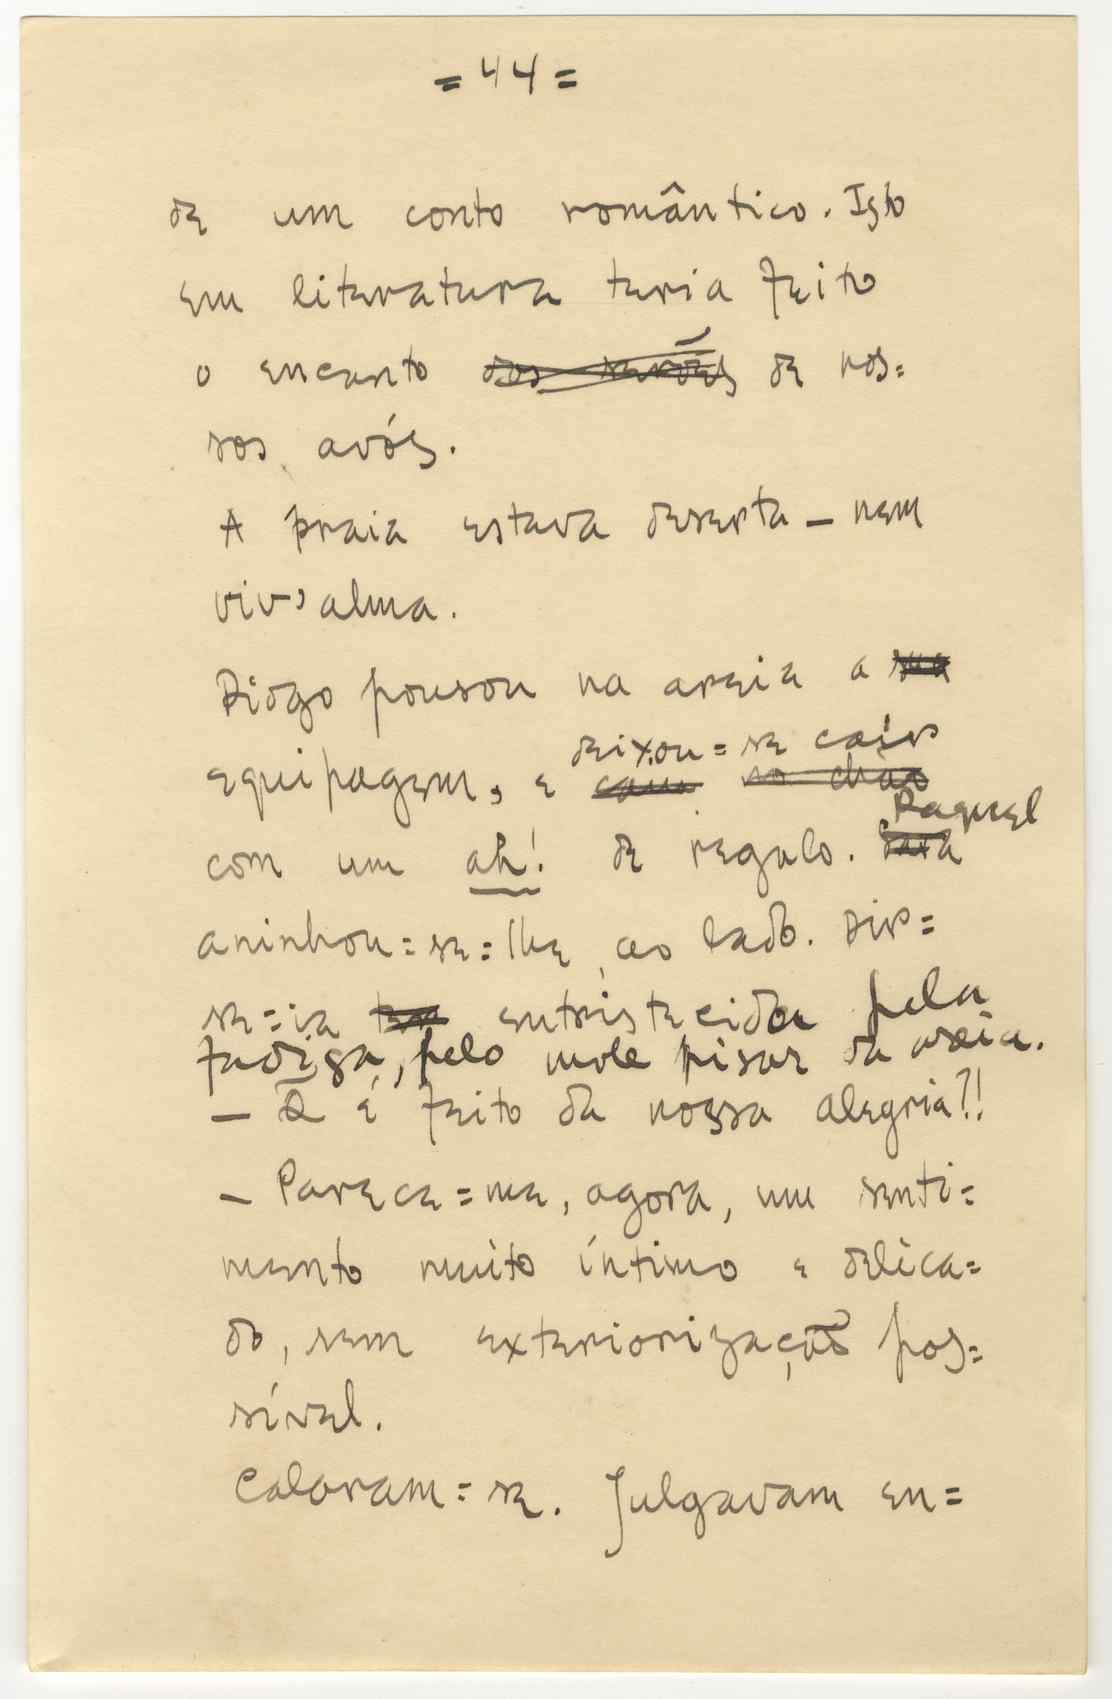 = 44 =
de um conto romântico. Isto
em literatura teria feito
o encanto dos serões de nos=
sos avós.
A praia estava deserta — nem
viv'alma.
Diogo pousou na areia a sua
deixou=se cair
equipagem, e caiu no chão
Raquel
com um ah! de regalo.
aninhou=se=lhe, ao lado. Dir=
se=ia entristecida pela
fadiga, pelo mole pisar da areia.
— Q̃ é feito da nossa alegria?!
— Parece=me, agora, um senti=
mento muito íntimo e delica=
do, sem exteriorização pos=
sível.
Calaram=se. Julgavam en=